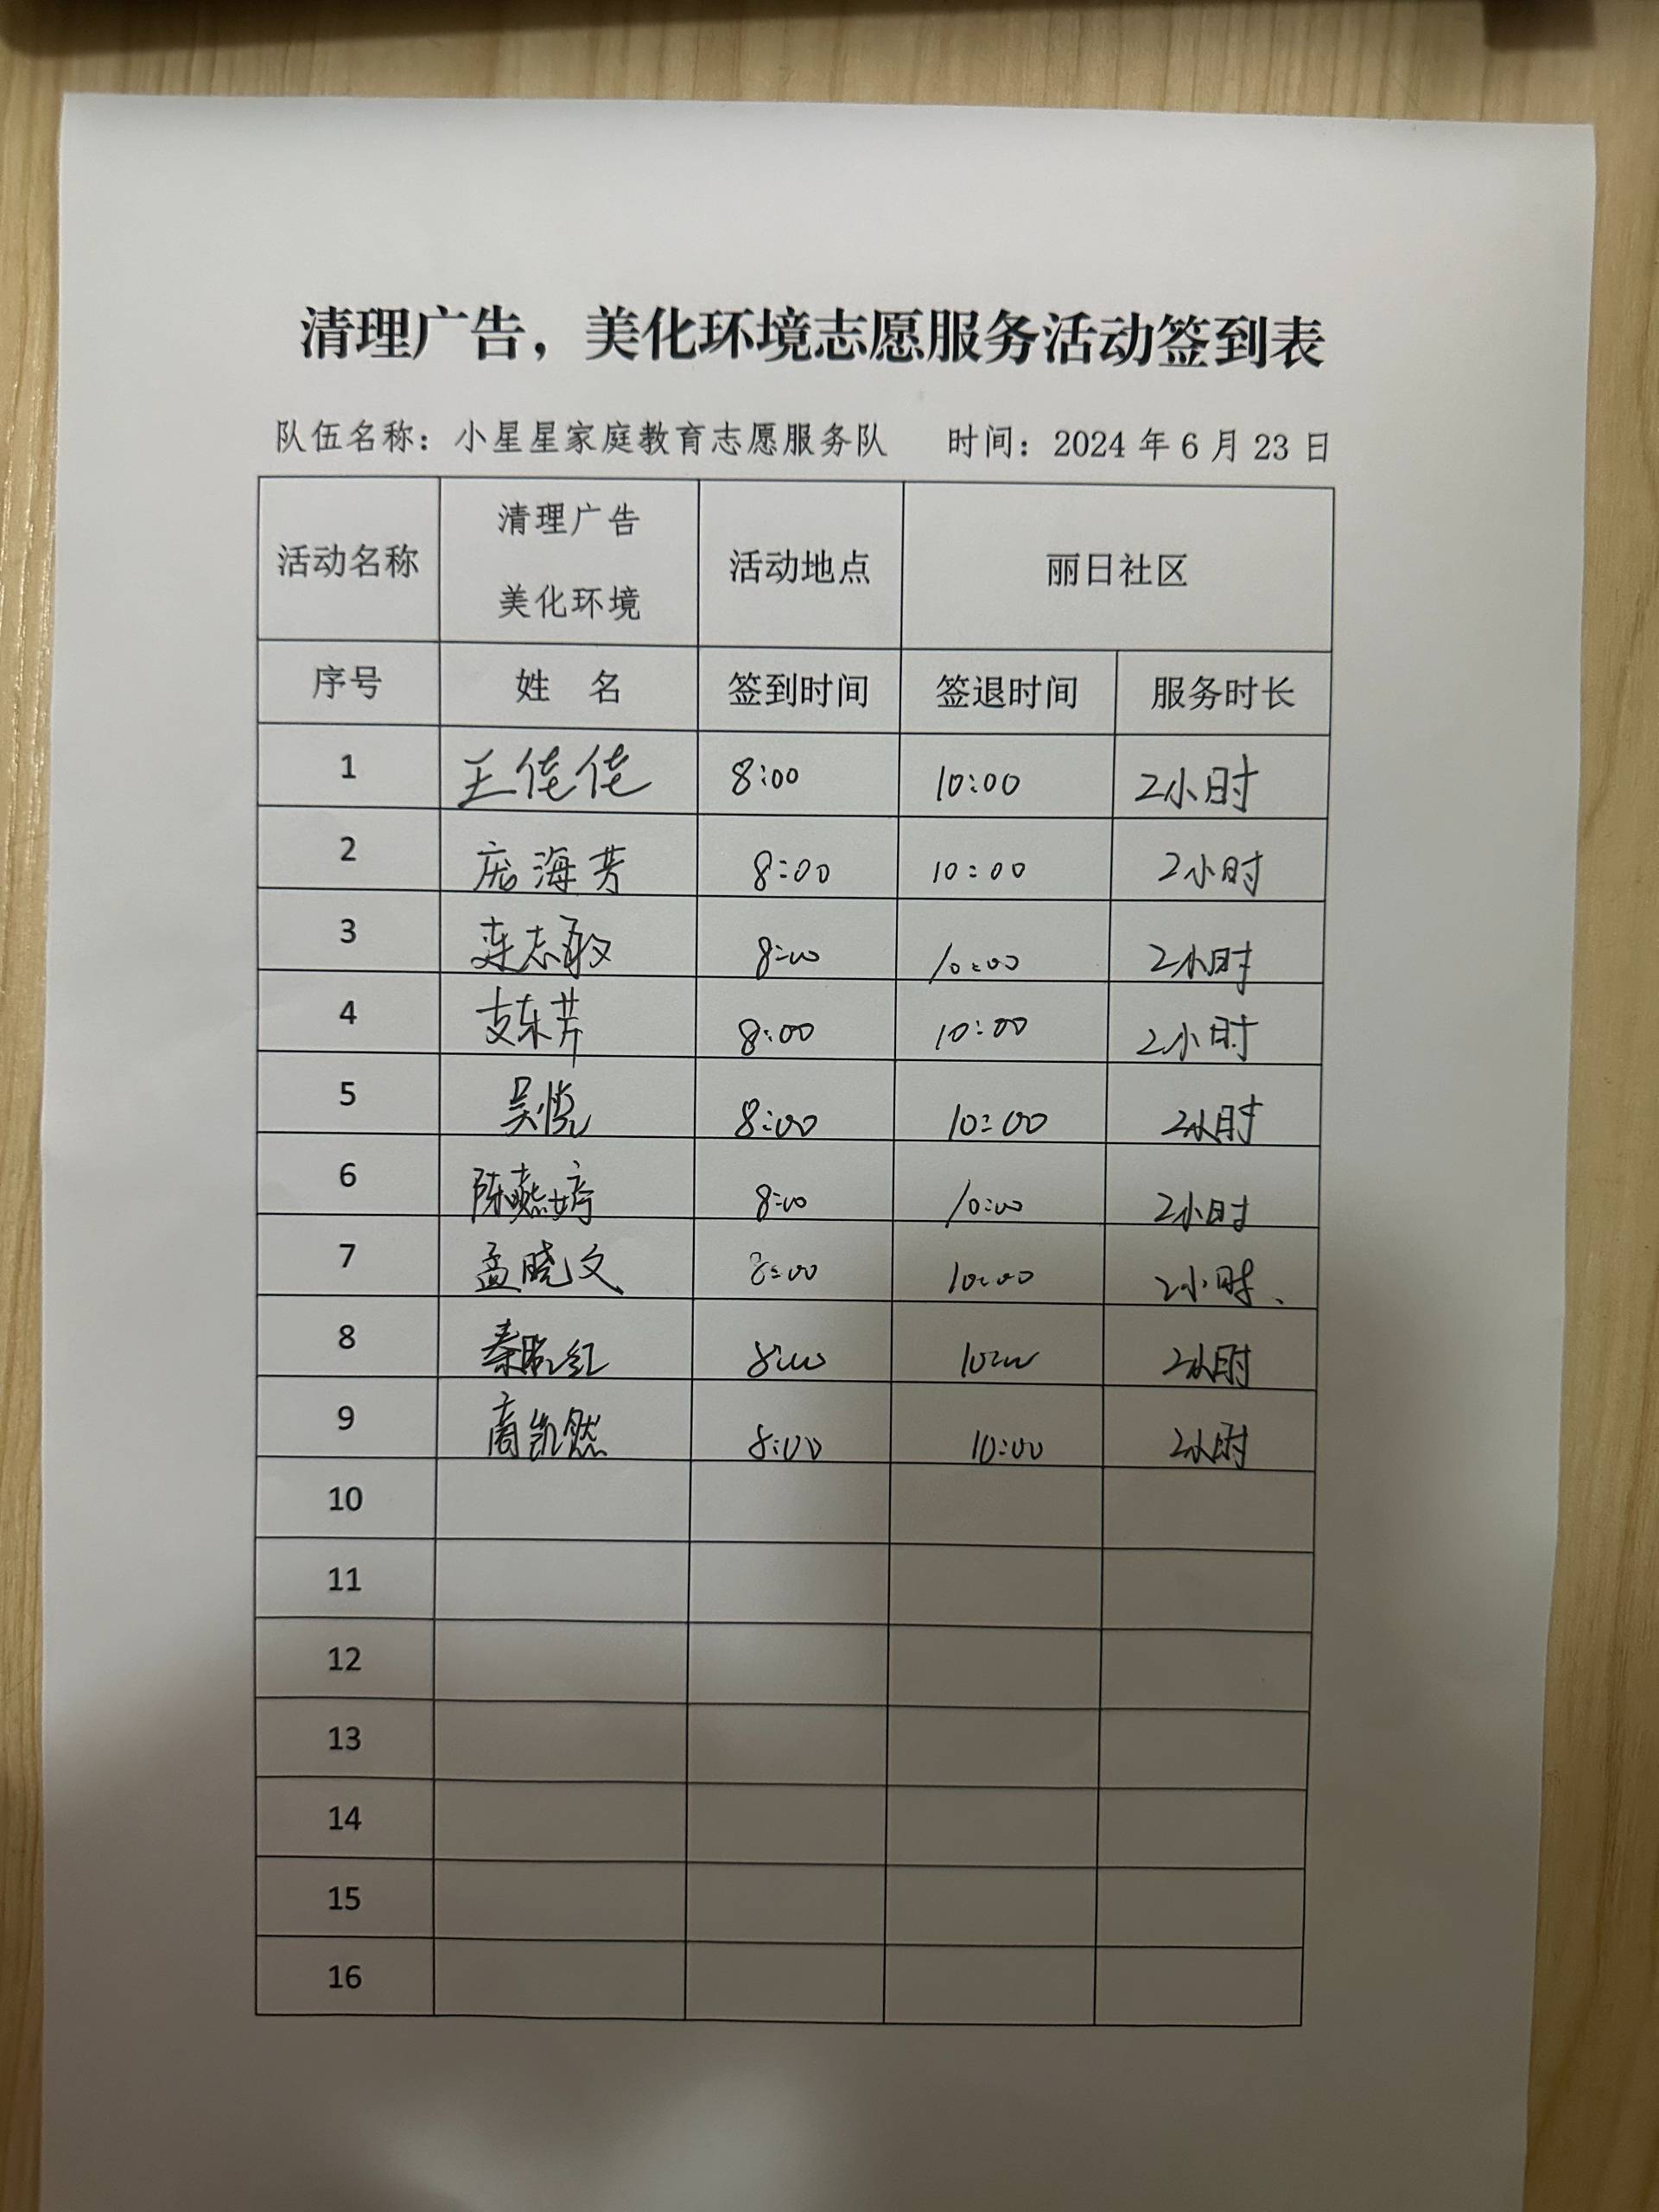 清理广告，美化环境志愿服务活动签到表
队伍名称：小星星家庭教育志愿服务队 时间：2024 年 6 月 23 日
活动名称 清理广告 美化环境 活动地点 丽日社区
序号 姓 名 签到时间 签退时间 服务时长
1 王佳佳 8:00 10:00 2小时
2 庞海芳 8:00 10:00 2小时
3 栾志敏 8:00 10:00 2小时
4 支东芹 8:00 10:00 2小时
5 吴悦 8:00 10:00 2小时
6 陈燕婷 8:00 10:00 2小时
7 孟晓文 8:00 10:00 2小时、
8 秦 红 8:00 10:00 2小时
9 商凯然 8:00 10:00 2小时
10
11
12
13
14
15
16